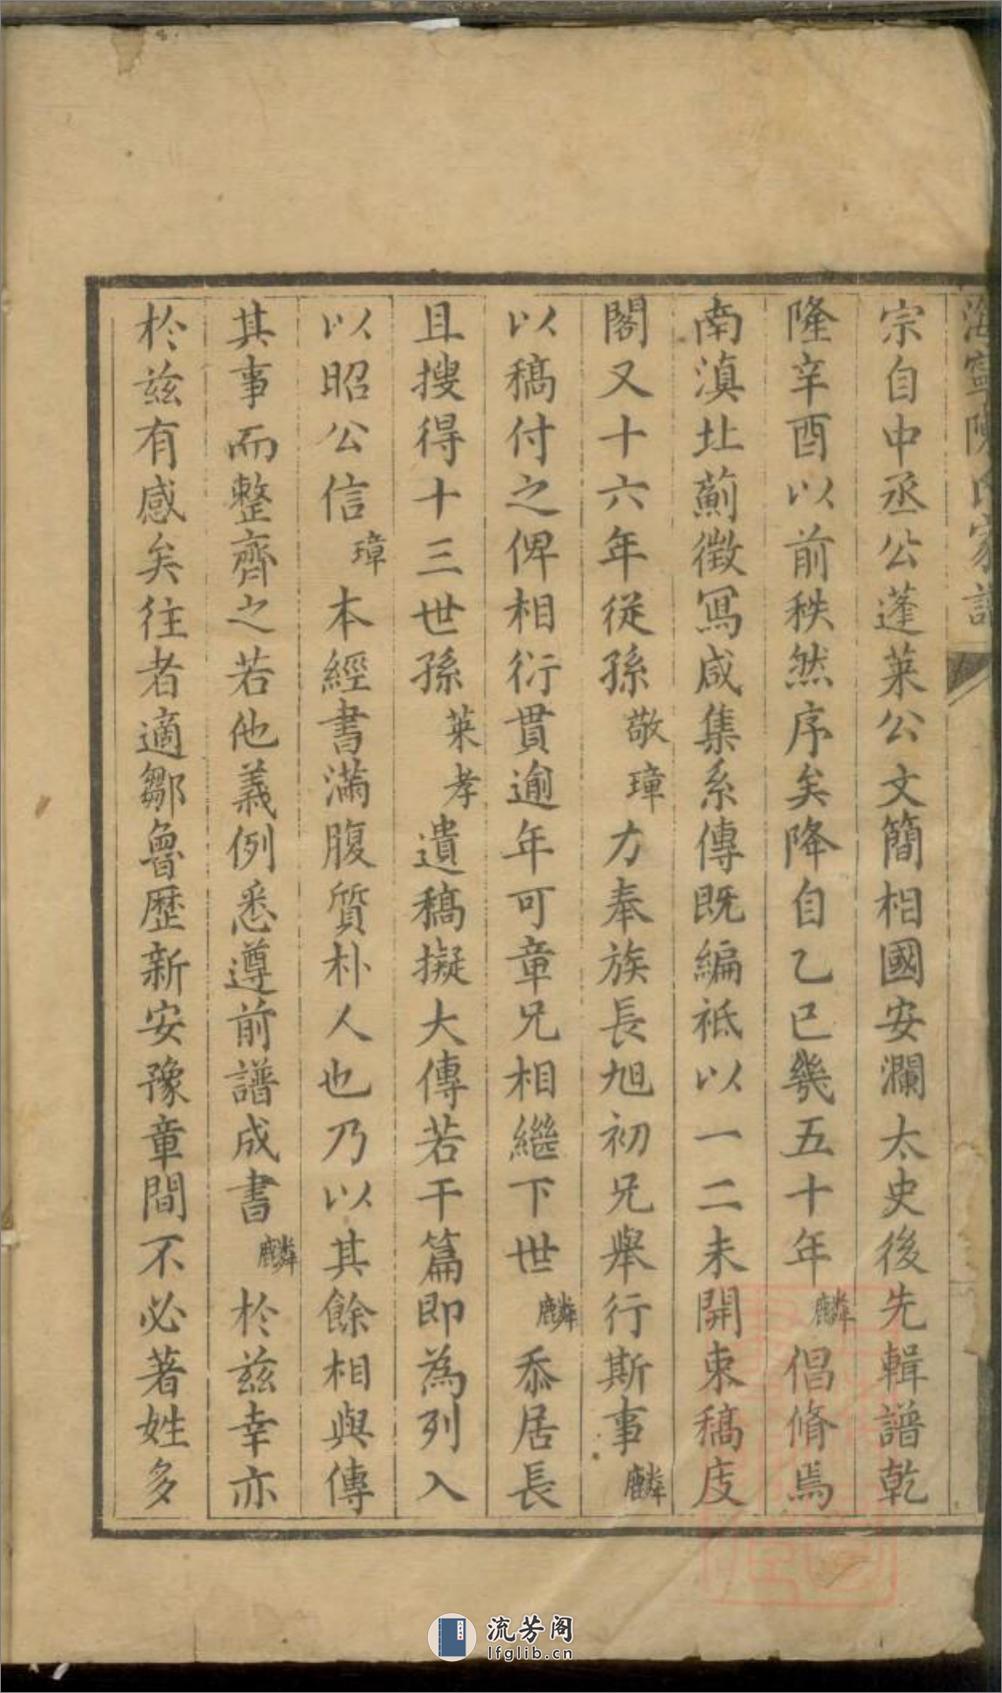 海寧陳氏家譜
宗自中丞公蓬萊公文簡相國安瀾太史後先輯譜乾
隆辛酉以前秩然序矣降自乙巳幾五十年麟倡脩焉
南滇北薊徵冩咸集系傳既編祗以一二未開束稿庋
閣又十六年從孫敬璋力奉族長旭初兄舉行斯事麟
以稿付之俾相衍貫逾年可章兄相繼下世麟忝居長
且搜得十三世孫萊孝遺稿擬大傳若干篇即為列入
以昭公信璋本經書滿腹質朴人也乃以其餘相與傳
其事而整齊之若他義例悉遵前譜成書麟於兹幸亦
於兹有感矣往者適鄒魯歷新安豫章間不必著姓多
流芳阁
lfglib.cn